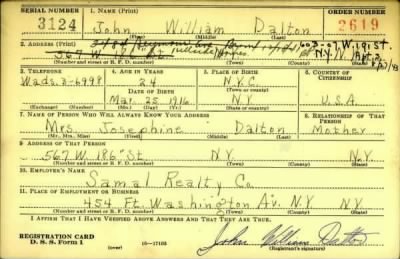 SERIAL NUMBER 1. NAME (Print) ORDER NUMBER
3124 John William Dalton 2619
(First) (Middle) (Last)
2. ADDRESS (Print)
603 W. 191 St.
N.Y.
(Number and street or R. F. D. number) (Town) (County) (State)
3. TELEPHONE 4. AGE IN YEARS 5. PLACE OF BIRTH 6. COUNTRY OF CITIZENSHIP
Wads. 3-6998 24 N.Y.C.
DATE OF BIRTH (Town or county)
Mar. 25 1916 N.Y. U.S.A.
(Exchange) (Number) (Mo.) (Day) (Yr.) (State or country)
7. NAME OF PERSON WHO WILL ALWAYS KNOW YOUR ADDRESS 8. RELATIONSHIP OF THAT PERSON
Mrs Josephine Dalton Mother
(Mr., Mrs., Miss) (First) (Middle) (Last)
9. ADDRESS OF THAT PERSON
567 W. 186 St. N.Y. N.Y.
(Number and street or R. F. D. number) (Town) (County) (State)
10. EMPLOYER'S NAME
Samal Realty Co
11. PLACE OF EMPLOYMENT OR BUSINESS
454 Ft. Washington Av. N.Y. N.Y.
(Number and street or R. F. D. number) (Town) (County) (State)
I AFFIRM THAT I HAVE VERIFIED ABOVE ANSWERS AND THAT THEY ARE TRUE.
REGISTRATION CARD
D. S. S. Form 1 16—17105 John William Dalton
(over) (Registrant's signature)